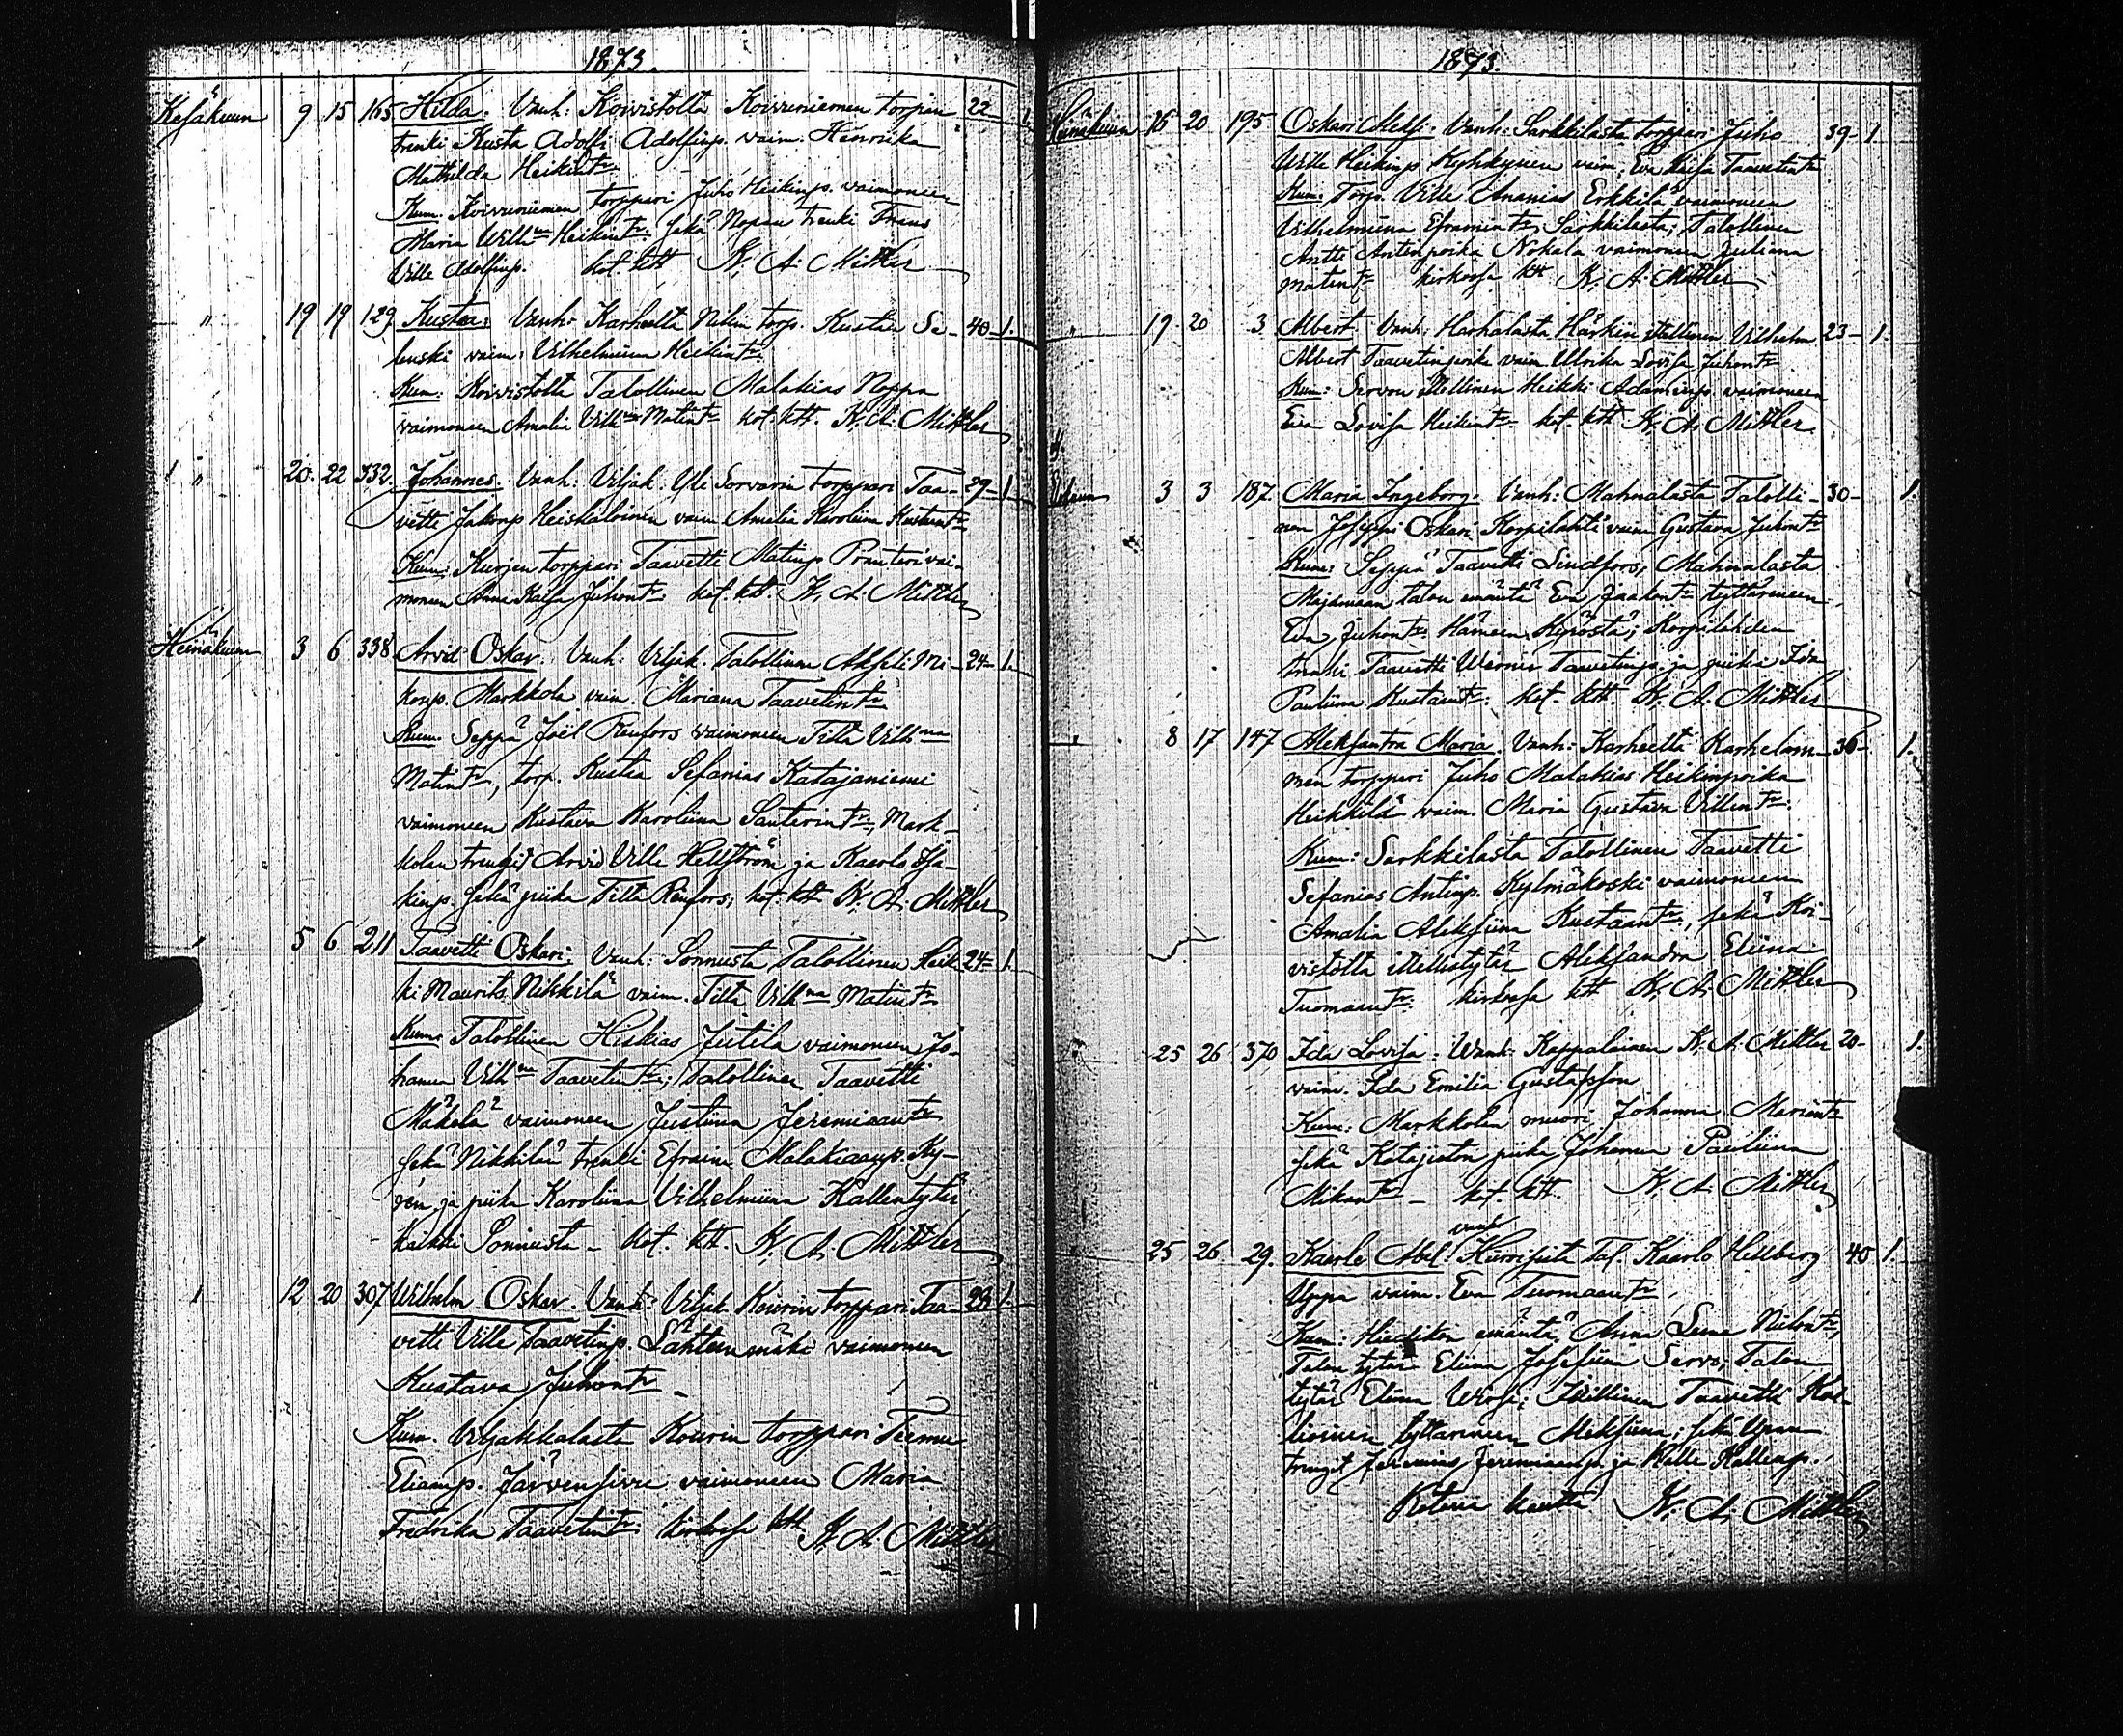 1873.
Kesäkuun 9 15 165 Hilda. Vanh: Koivistolta Koivuniemen torpan 22 1
trenki Kusta Adolfi Adolfinp. vaim. Henrika
Mathilda Heikintr.
Kum. Koivuniemen torppari Juho Heikinp. vaimoneen
Maria Willna Heikintr. sekä Nopan trenki Frans
Ville Adolfinp. kot. ktt K. A. Mittler
" 19 19 129 Kustaa: Vanh: Karheelta torp. Kustaa Se- 40 1.
lenski vaim: Vilhelmiina Heikintr.
Kum: Koivistolta Talollinen Malakias Noppa
vaimoneen Amalia Vilhna Matintr kot. ktt. K. A. Mittler
" 20. 22 332. Johannes. Vanh: Viljak. Yli Sorvarin torppari Taa- 29 1
vetti Jakonp Heiskaloinen vaim Amalia Karoliina Kustaantr.
Kum: Kurjen torppari Taavetti Matinp vai-
moneen Anna Kaisa Juhontr. kot. ktt. K. A. Mittler
Heinäkuun 3 6 338 Arvid Oskar. Vanh: Viljak. Talollinen Akseli Mi- 24 1.
konp. Markkola vaim. Mariana Taavetintr
Kum. Seppä Joël Renfors vaimoneen Tilta Vilhna
Matintr, torp. Kustaa Sefanias Katajaniemi
vaimoneen Kustava Karoliina Santerintr, Mark-
kolan trengit Arvid Ville Hellström ja Kaarlo Isa-
kinp. sekä piika Tilta Renfors, kot. ktt K. A. Mittler
5 6 211 Taavetti Oskari. Vanh: Sonnusta Talollinen Heik- 24 1.
ki Maurits Nikkilä vaim. Tilta Vilhna Matintr
Kum: Talollinen Hiskias Jutila vaimoneen Jo-
hanna Vilhna Taavetintr; Talollinen Taavetti
Mäkelä vaimoneen Justiina Jeremiaantr
sekä Nikkilän trenki Efraim Malakiaanp. Ky-
rén ja piika Karoliina Vilhelmiina Kallentytär
kaikki Sonnusta - kot. ktt. K. A. Mittler
12 20 307 Wilhelm Oskar. Vanh: Viljak Kourin torppari Taa- 1.
vetti Ville Taavetinp. Lähteenmäki vaimoneen
Kustava Juhontr.
Kum. Viljakkalasta Kourin torppari Teemu
Elianp. Järvensivu vaimoneen Maria
Fredrika Taavetintr. kirkossa ktt. K. A. Mittler
1873.
Heinäkuun 16 20 195 Oskari Vanh: Sarkkilasta torppari Juho 39 1.
Wille Heikinp vaim. Eva Kaisa Taavetintr
Kum: Torp. Ville Ananias Erkkilä vaimoneen
Vilhelmiina Efraimintr, Sarkkilasta; Talollinen
Antti Antinpoika Nokala vaimoneen Juliana
Matintr kirkossa ktt K. A. Mittler
" 19. 20 3 Albert. Vanh: Haukalasta Härkin itsellinen Vilhelm 23 1.
Albert Taavetinpoika vaim. Ulrika Lovisa Juhontr
Kum: Servon itsellinen Heikki Adaminp. vaimoneen
Eva Lovisa Heikintr kot. ktt K. A. Mittler.
Elokuun 3 3 187. Maria Ingeborg. Vanh: Mahnalasta Talolli- 30 1.
nen Josippi Oskari Korpilahti vaim Gustava Juhontr
Kum: Seppä Taavetti Lindfors, Mahnalasta
talon emäntä Eva Jaakontr tyttärineen,
Eva Juhontr Hämeen Kyröstä; Korpilahden
trenki Taavetti Werner Taavetinp. ja piika Ida
Pauliina Kustaantr. kot. ktt. K. A. Mittler
8 17 147 Aleksantra Maria. Vanh: Karheelta Karhelam- 36 1.
men torppari Juho Malakias Heikinpoika
Heikkilä vaim. Maria Gustava Villentr.
Kum: Sarkkilasta Talollinen Taavetti
Sefanias Antinp. Kylmäkoski vaimoneen
Amalia Aleksiina Kustaantr, sekä Koi-
vistolta itsellistytär Aleksandra Eliina
Tuomaantr. kirkossa ktt K. A. Mittler
25 26 370 Ida Lovisa: Wanh: Kappalainen K. A. Mittler 20 1.
vaim. Ida Emilia Gustafsson
Kum: Markkolan muori Johanna Marintr
sekä Katajiston piika Johanna Pauliina
Mikontr - kot. ktt. K. A. Mittler
vanh
25 26 29. Kaarle Abel: Tal. Kaarlo Hellberg 40 1.
Uppa vaim. Eva Tuomaantr.
Kum: emäntä Anna Leena
Talon tytär Eliina Josefiina Servo, Talon
tytär Eliina Itsellinen Taavetti
tyttärineen sekä Upan
trengit Jeremias Jeremiaanp ja Kalle Kallenp.
kautta K. A. Mittler